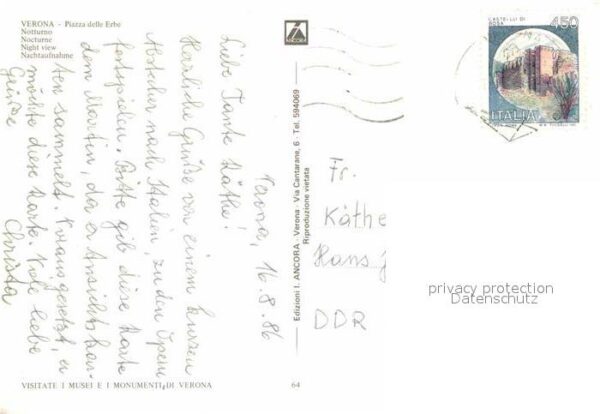 VERONA - Piazza delle Erbe
Notturno
Nocturne
Night view
Nachtaufnahme
Verona, 16.8.86
Liebe Tante Käthe!
Herzliche Grüße von einem kurzen
Abstecher nach Italien, zu den Opern
festspielen. Bitte gib diese Karte
dem Martin, da er Ansichtskar-
ten sammelt. Vorausgesetzt, er
möchte diese Karte. Viele liebe
Grüße
Christa
VISITATE I MUSEI E I MONUMENTI DI VERONA
64
ANCORA
Edizioni I. ANCORA - Verona - Via Cantarane, 6 - Tel. 594069
Riproduzione vietata
CASTELLI DI
450
ITALIA
Fr.
Käthe
Hans
DDR
privacy protection
Datenschutz